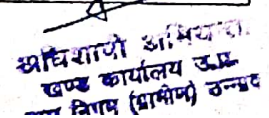 अधिशाषी अभियन्ता
खण्ड कार्यालय उ.प्र.
निगम (ग्रामीण) उन्नाव